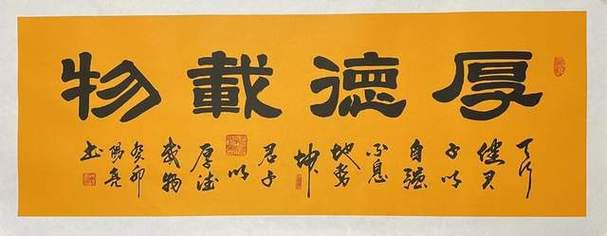 厚德載物
天行
健君
子以
自强
不息
地势
坤
君子
以
厚德
载物
癸卯
书